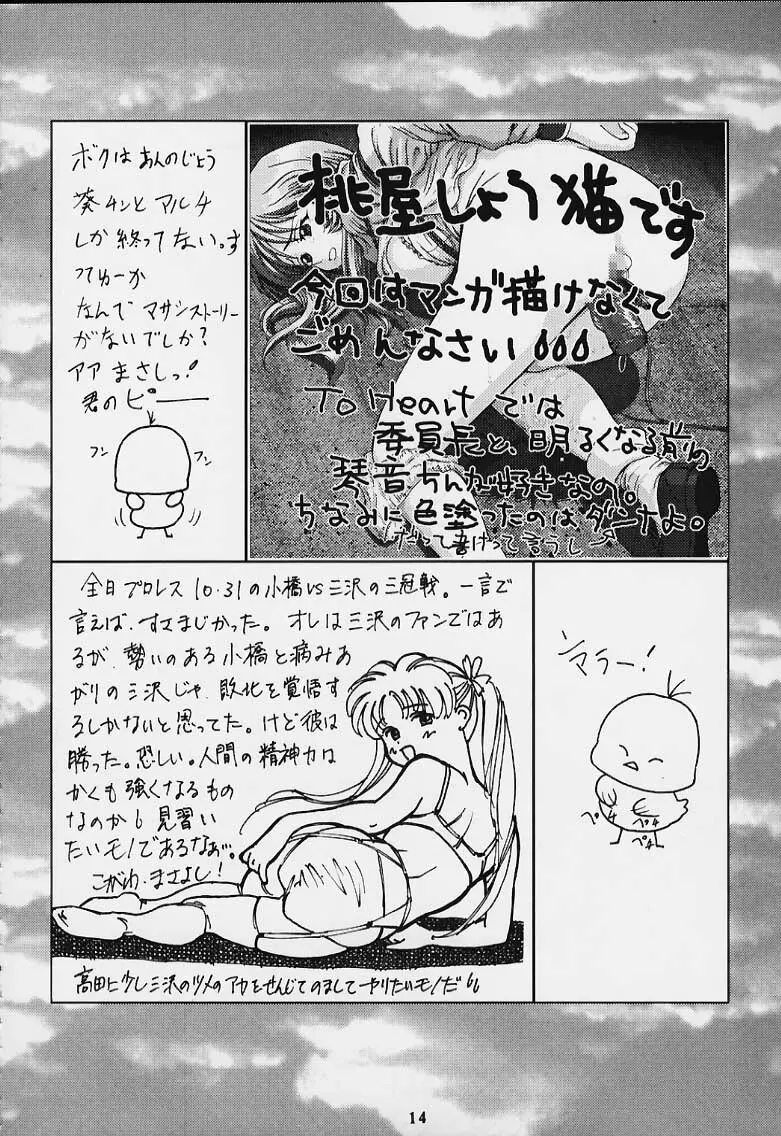 ボクは あんのじょう
葵チンと マルチ
しか 終ってない。す
つてゅーか
なんで マサシストーリー
がないでしか?
アア まさしっ!
君のピ――
フン
フン
桃屋しょう猫です
今回はマンガ描けなくて
ごめんなさい
To Heart では
委員長と、明るくなる前の
琴音ちんが好きなの。
ちなみに色塗ったのはダンナよ。
だって書けって言うし
全日プロレス 10.31の小橋vs三沢の三冠戦。一言で
言えば、すさまじかった。オレは三沢のファンではあ
るが、勢いのある小橋と病みあ
がりの三沢じゃ、敗北を覚悟す
るしかないと思ってた。けど彼は
勝った。恐しい。人間の精神力は
かくも強くなるもの
なのか。見習い
たいモノであるなぁ…。
こがわ・まさよし!
高田に少し三沢のツメのアカをせんじてのましてやりたいモノだ
マラー!
ペチ
ペチ
ペチ
14